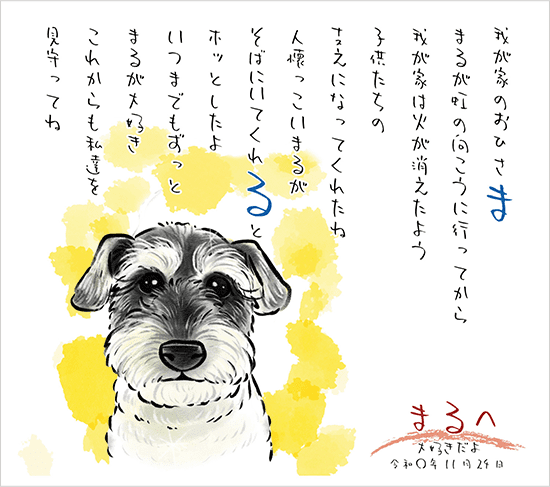 我が家のおひさま
まるが虹の向こうに行ってから
我が家は火が消えたよう
子供たちの
支えになってくれたね
人懐っこいまるが
そばにいてくれると
ホッとしたよ
いつまでもずっと
まるが大好き
これからも私達を
見守ってね
まるへ
大好きだよ
令和〇年11月24日